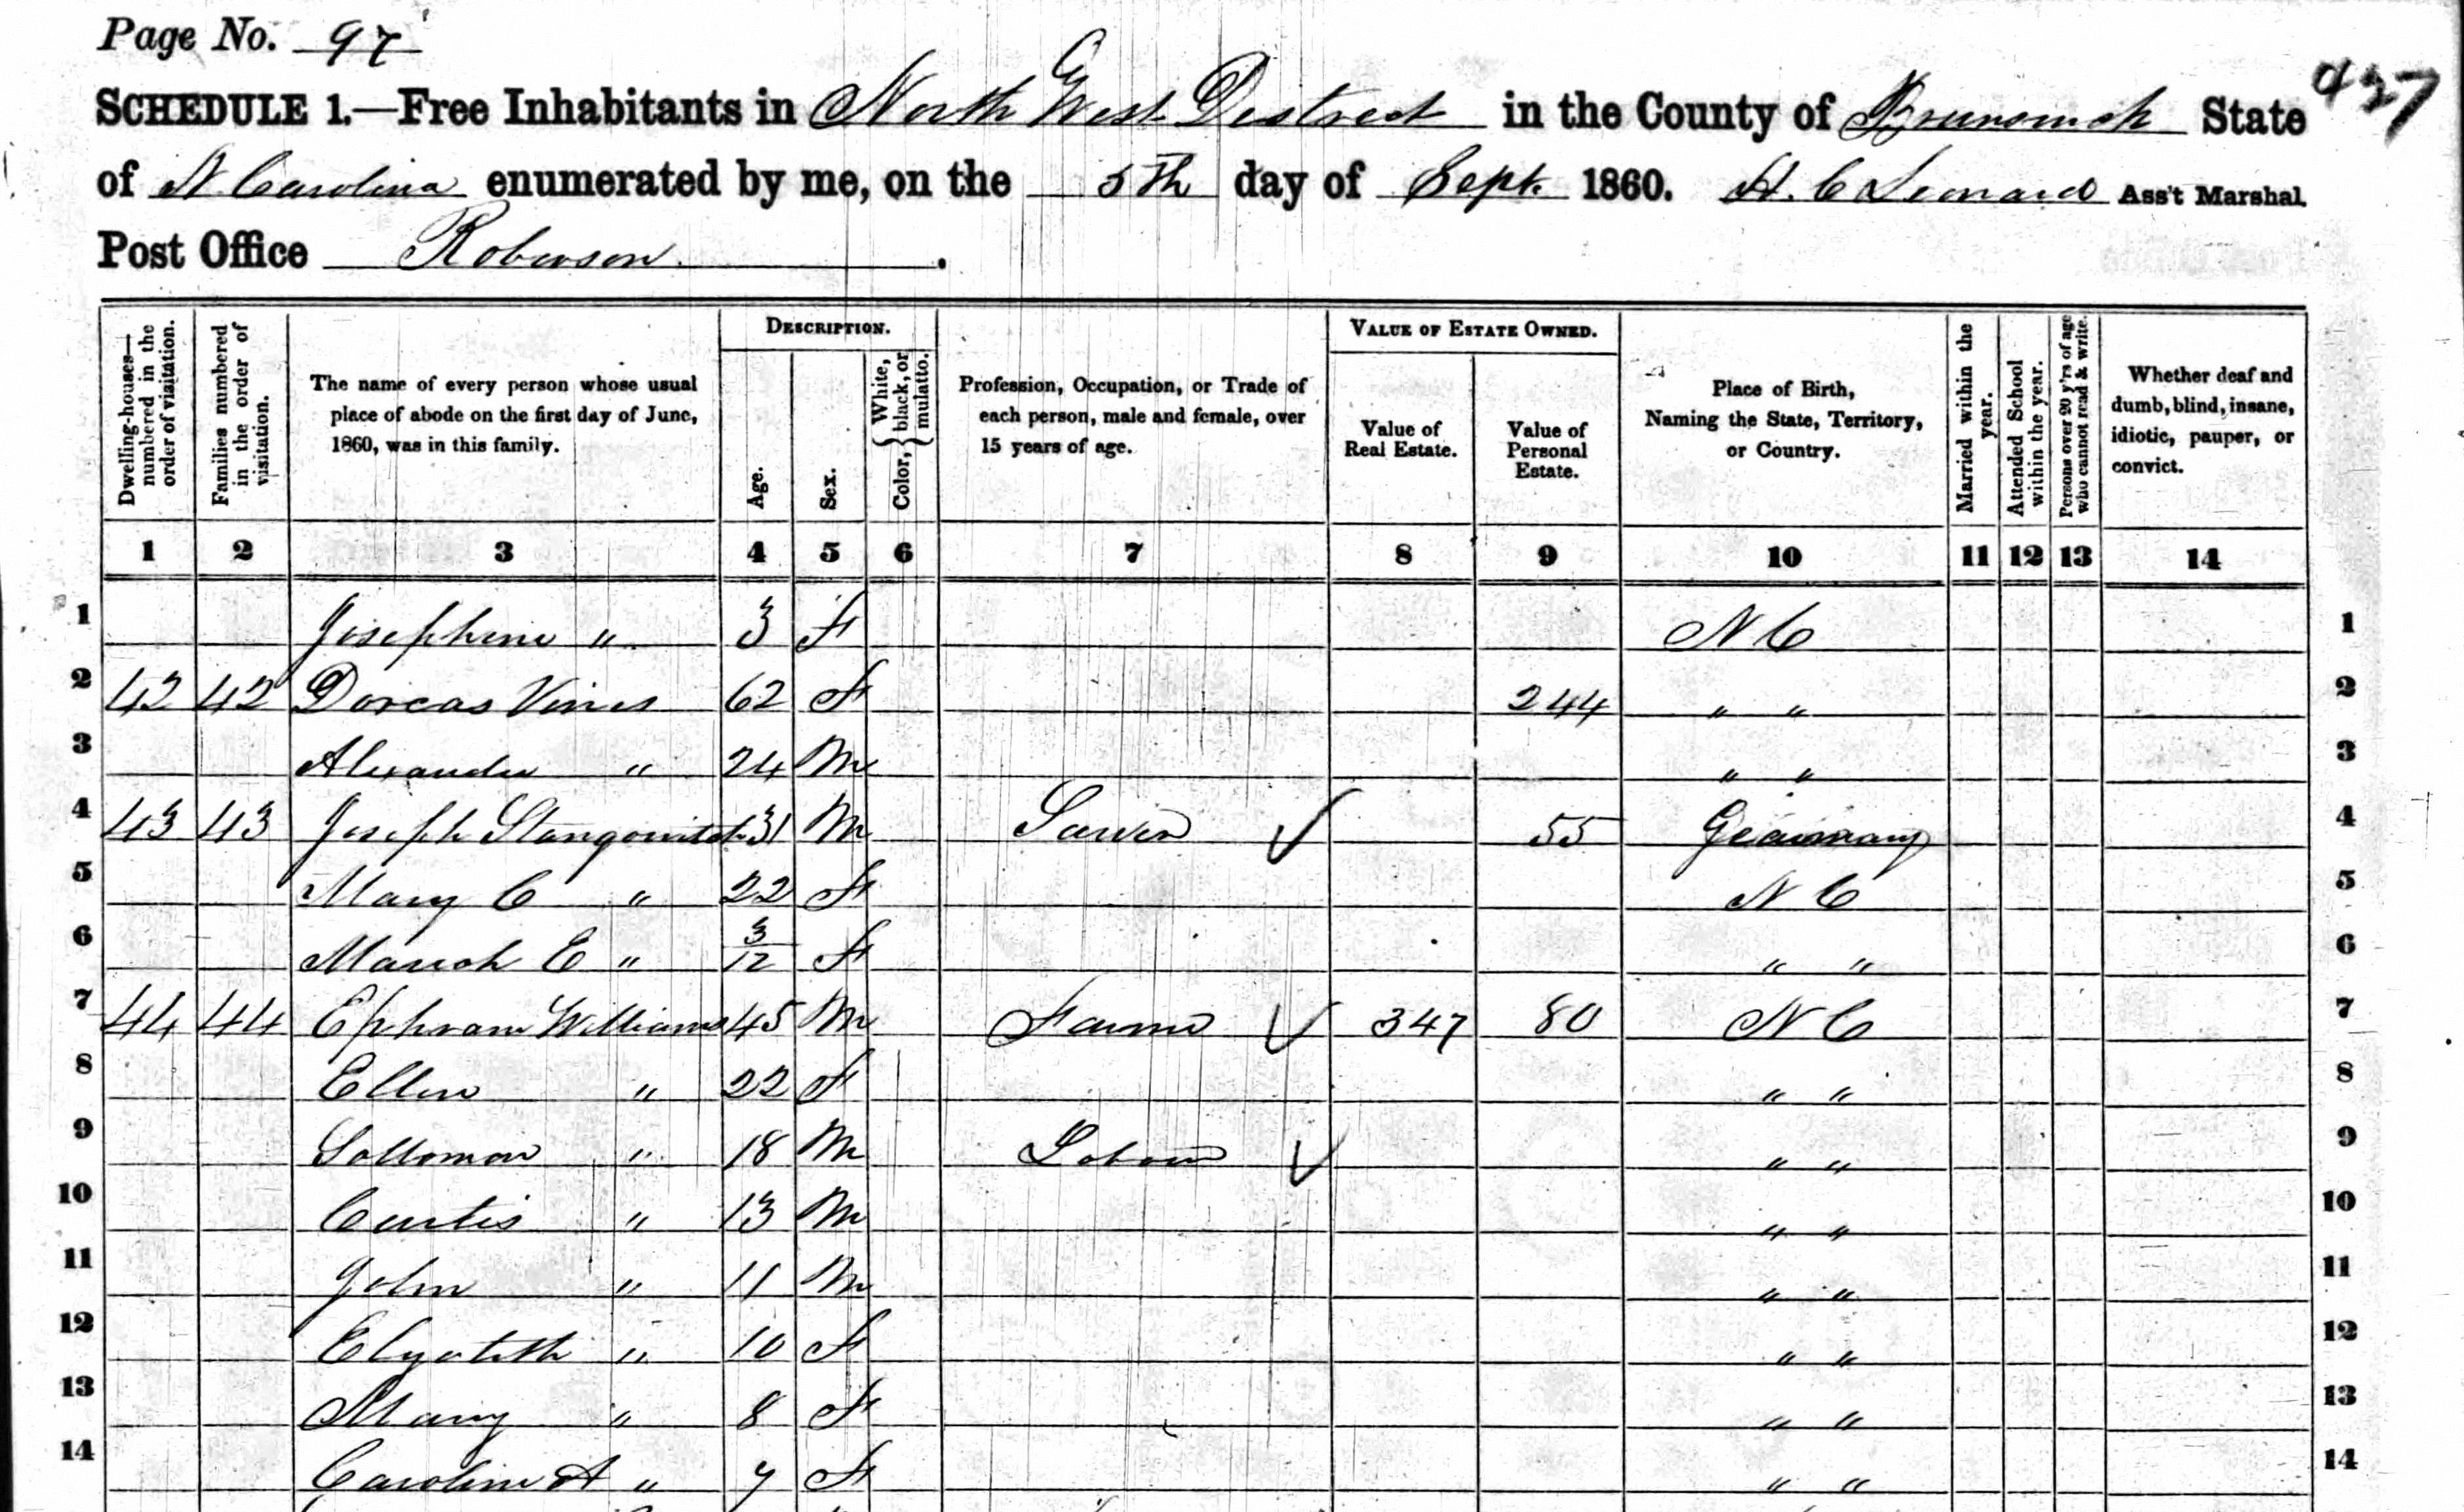 Page No. 97
437
SCHEDULE 1.—Free Inhabitants in North West District in the County of Brunswick State
of N Carolina enumerated by me, on the 5th day of Sept. 1860. H. C Leonard Ass't Marshal.
Post Office Roberson.
Dwelling-houses—numbered in the order of visitation.
Families numbered in the order of visitation.
The name of every person whose usual place of abode on the first day of June, 1860, was in this family.
DESCRIPTION.
Age.
Sex.
Color, { White, black, or mulatto.
Profession, Occupation, or Trade of each person, male and female, over 15 years of age.
VALUE OF ESTATE OWNED.
Value of Real Estate.
Value of Personal Estate.
Place of Birth, Naming the State, Territory, or Country.
Married within the year.
Attended School within the year.
Persons over 20 y'rs of age who cannot read & write.
Whether deaf and dumb, blind, insane, idiotic, pauper, or convict.
1 2 3 4 5 6 7 8 9 10 11 12 13 14
1 Josephine " 3 F N C 1
2 42 42 Dorcas Vines 62 F 244 " " 2
3 Alexander " 24 M " " 3
4 43 43 Joseph 31 M 55 Germany 4
5 Mary C " 22 F N C 5
6 Mariah E " 3/12 F " " 6
7 44 44 Ephram Williams 45 M Farmer 347 80 N C 7
8 Ellen " 22 F " " 8
9 Sollomon " 18 M Laborer " " 9
10 Curtis " 13 M " " 10
11 John " 11 M " " 11
12 Elyabeth " 10 F " " 12
13 Mary " 8 F " " 13
14 Caroline A " 7 F " " 14